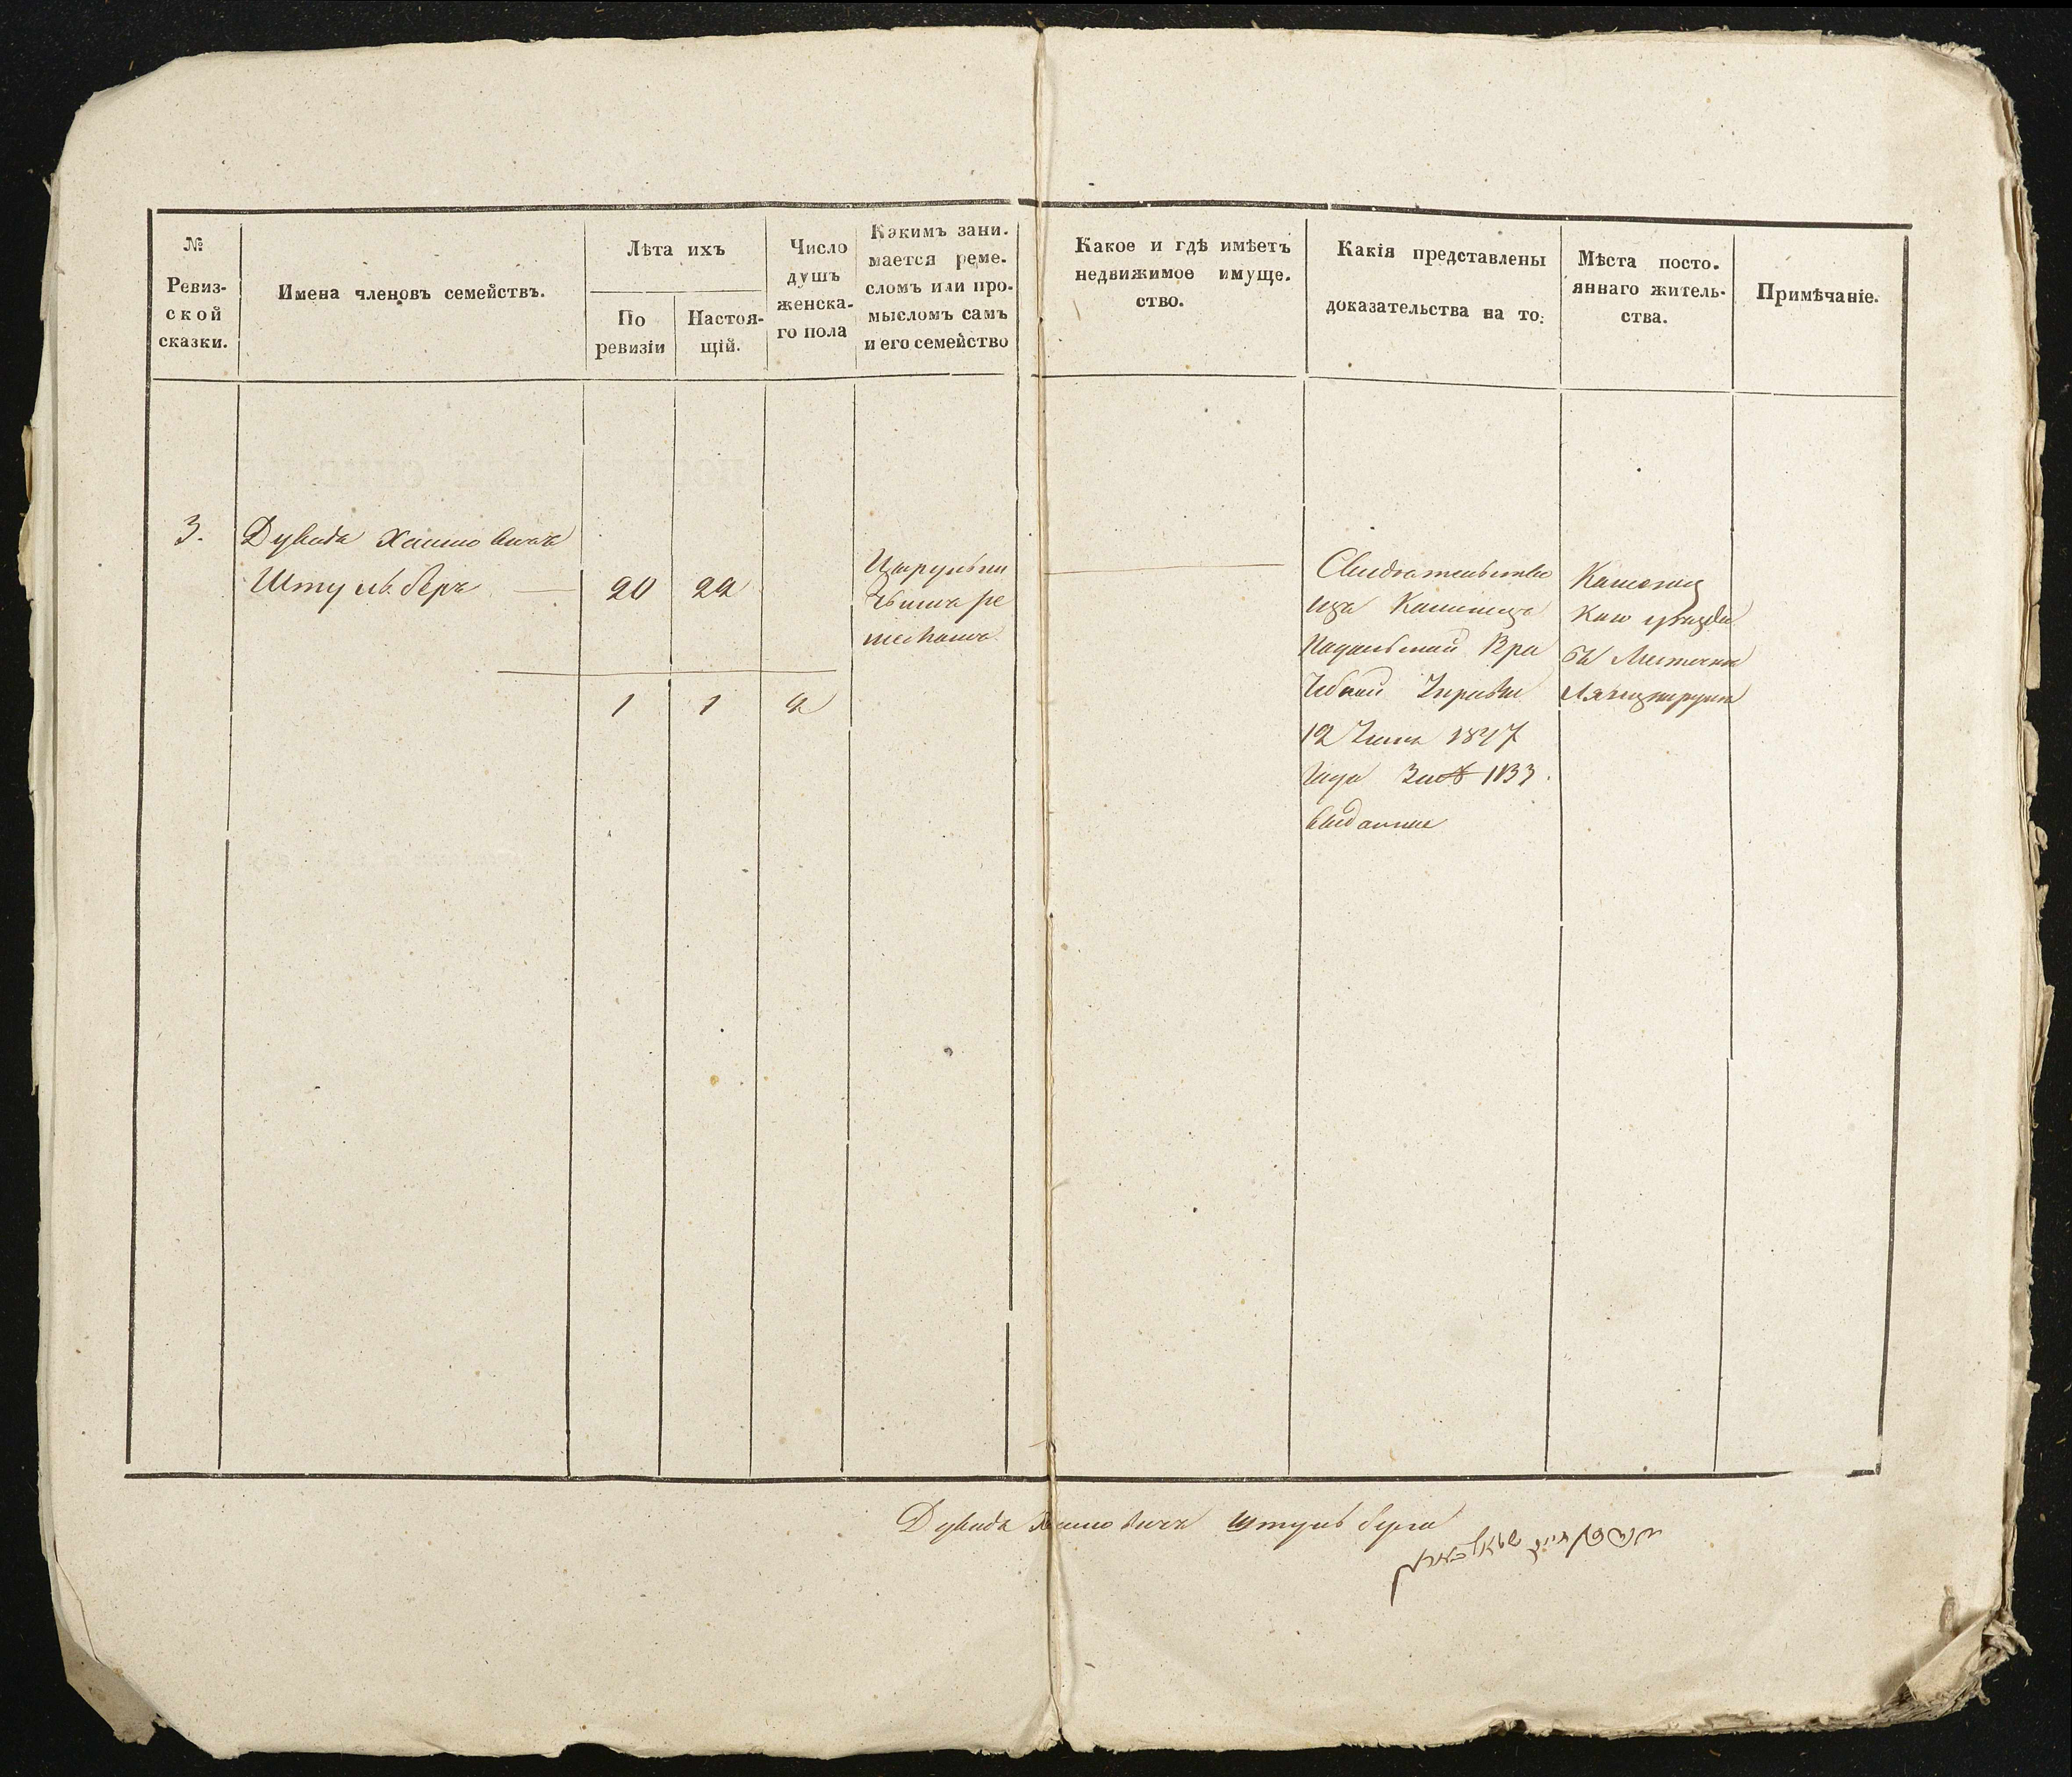 №
Ревиз-
ской
сказки.
Имена членовъ семействъ.
Лѣта ихъ
По
ревизіи
Настоя-
щій.
Число
душъ
женска-
го пола
Какимъ зани-
мается реме-
сломъ или про-
мысломъ самъ
и его семейство
Какое и гдѣ имѣетъ
недвижимое имуще-
ство.
Какія представлены
доказательства на то:
Мѣста посто-
яннаго житель-
ства.
Примѣчаніе.
3.
Дувидъ Хаимовичъ
Штульберъ
20
22
Цырульни
чьимъ ре
месломъ
1
1
2
Свидѣтельство
изъ
Подольской Вра
чебной Управы
12 1847
года За № 1133.
выданное
Каменец
каго уѣзда
въ Местечкѣ
Дувидъ Хаимовичъ Штульберъ